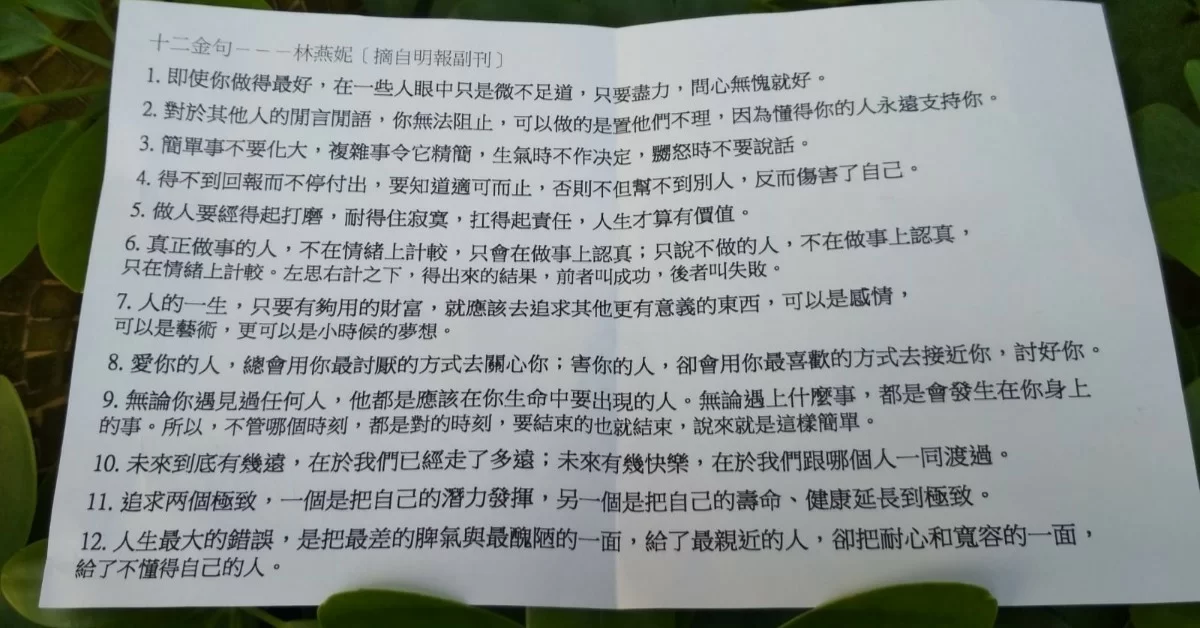 十二金句－－－林燕妮〔摘自明報副刊〕
1. 即使你做得最好，在一些人眼中只是微不足道，只要盡力，問心無愧就好。
2. 對於其他人的閒言閒語，你無法阻止，可以做的是置他們不理，因為懂得你的人永遠支持你。
3. 簡單事不要化大，複雜事令它精簡，生氣時不作決定，嬲怒時不要說話。
4. 得不到回報而不停付出，要知道適可而止，否則不但幫不到別人，反而傷害了自己。
5. 做人要經得起打磨，耐得住寂寞，扛得起責任，人生才算有價值。
6. 真正做事的人，不在情緒上計較，只會在做事上認真；只說不做的人，不在做事上認真，
只在情緒上計較。左思右計之下，得出來的結果，前者叫成功，後者叫失敗。
7. 人的一生，只要有夠用的財富，就應該去追求其他更有意義的東西，可以是感情，
可以是藝術，更可以是小時候的夢想。
8. 愛你的人，總會用你最討厭的方式去關心你；害你的人，卻會用你最喜歡的方式去接近你，討好你。
9. 無論你遇見過任何人，他都是應該在你生命中要出現的人。無論遇上什麼事，都是會發生在你身上
的事。所以，不管哪個時刻，都是對的時刻，要結束的也就結束，說來就是這樣簡單。
10. 未來到底有幾遠，在於我們已經走了多遠；未來有幾快樂，在於我們跟哪個人一同渡過。
11. 追求两個極致，一個是把自己的潛力發揮，另一個是把自己的壽命、健康延長到極致。
12. 人生最大的錯誤，是把最差的脾氣與最醜陋的一面，給了最親近的人，卻把耐心和寬容的一面，
給了不懂得自己的人。